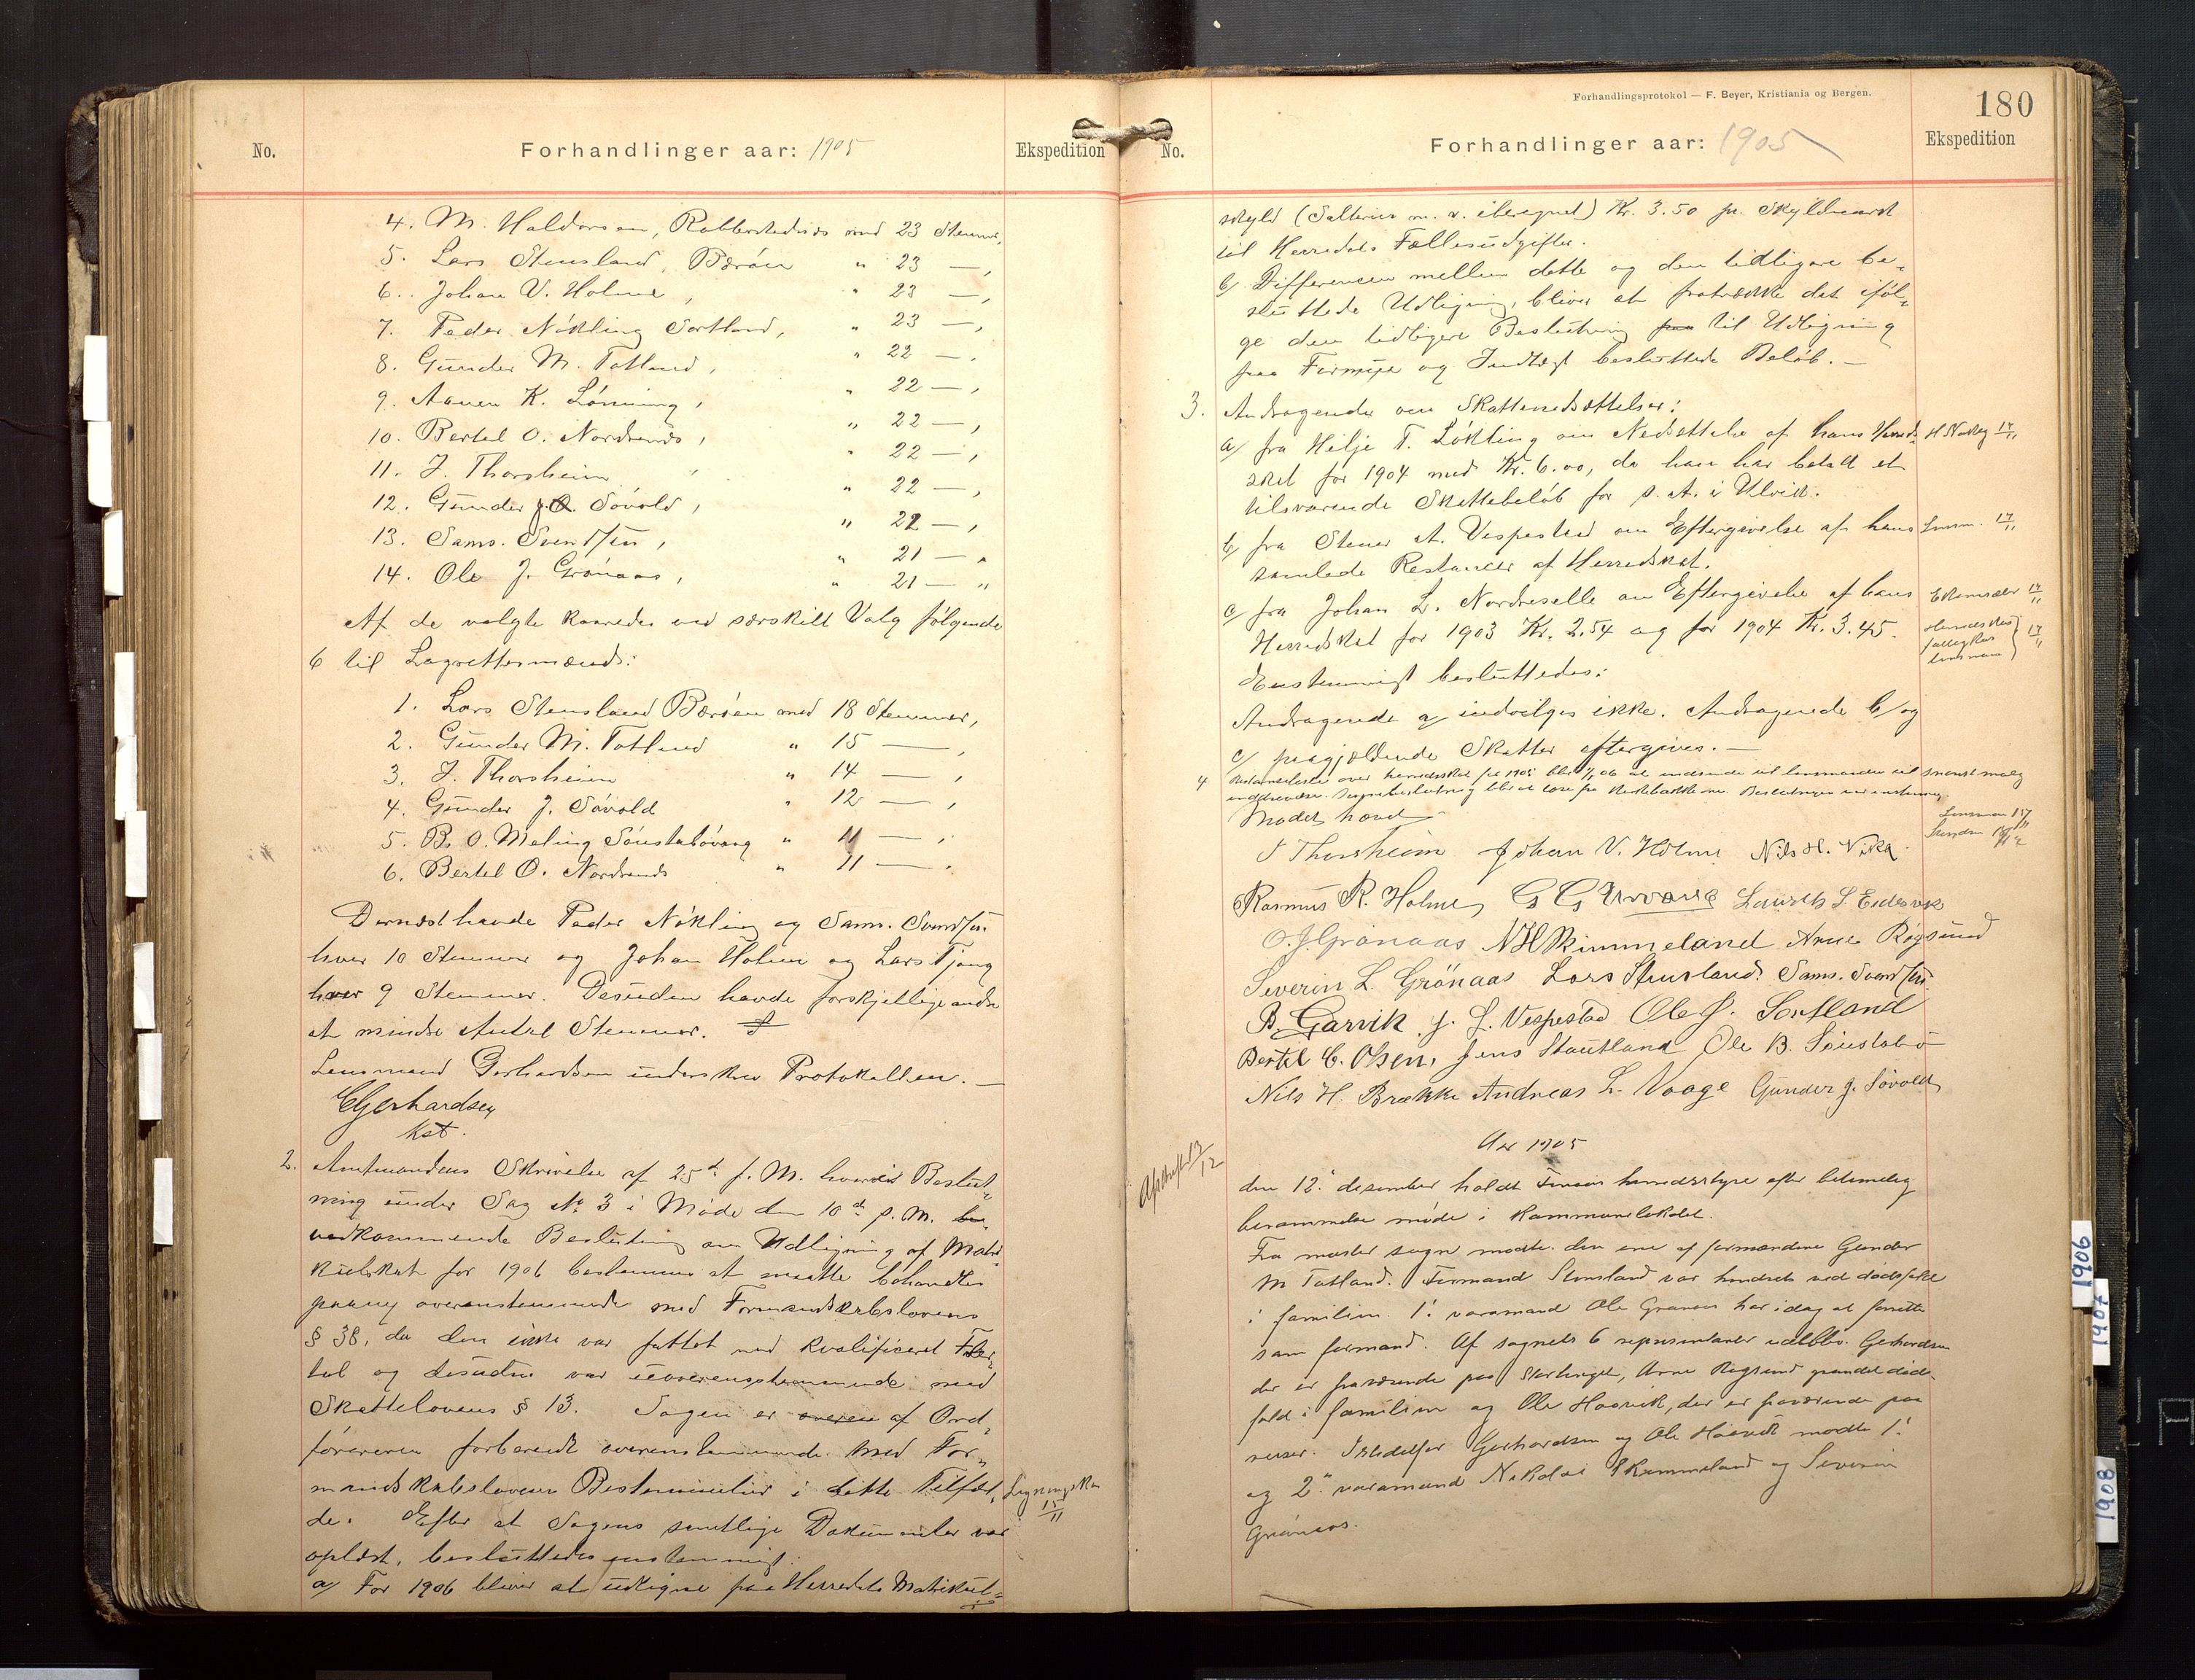 No.
Forhandlinger aar: 1905
Ekspedition
4. M. Haldorsen, Rabberstadnæs med 23 Stemmer,
5. Lars Stensland, Børøen " 23 — ,
6. Johan V. Holme, " 23 — ,
7. Peder Nökling Sortland, " 23 — ,
8. Gunder M. Totland, " 22 — ,
9. K. Lönning, " 22 — ,
10. Bertel O. Nordsends, " 22 — ,
11. J. Thorsheim, " 22 — ,
12. Gunder J. Søvold, " 22 — ,
13. Sams. Svendsen, " 21 — "
14. Ole J. Grønaas, " 21 — "
Af de valgte kaaredes ved særskilt Valg følgende
6 til Lagrettemænd:
1. Lars Stensland Børøen med 18 Stemmer,
2. Gunder M. Totland " 15 — ,
3. J. Thorsheim " 14 — ,
4. Gunder J. Søvold " 12 — ,
5. B. O. Meling Sønstabøvaag " 11 — ,
6. Bertel O. Nordsends " 11 — .
Dernæst havde Peder Nökling og Sams. Svendsen
hver 10 Stemmer og Johan Holme og Lars Tjong
hver 9 Stemmer. Desuden havde forskjellige andre
et mindre Antal Stemmer.
Lensmand Gerhardsen underskrev Protokollen. —
E Gerhardsen
kst.
2. Amtmandens Skrivelse af 25de f. M. hvorved Beslut-
ning under Sag No 3 i Møde den 10de p. M.
vedkommende Beslutning om Udligning af Matri-
kulskat for 1906 bestemmes at maatte behandles
paany overensstemmende med Formandskabslovens
§ 38, da den ikke var fattet med kvalificeret Fler-
tal og desuden var uoverensstemmende med
Skattelovens § 13. Sagen er af Ord-
føreren forberedt overensstemmende med For-
mandskabslovens Bestemmelser i dette Tilfæl-
de. Efter at Sagens samtlige Dokumenter var
oplæst, besluttedes enstemmigt:
a/ For 1906 bliver at udligne paa Herredets Matrikul-
Ligningskom
15/11
Forhandlingsprotokol — F. Beyer, Kristiania og Bergen.
180
No.
Forhandlinger aar: 1905
Ekspedition
skyld (Salterier m. v. iberegnet) Kr. 3.50 pr. Skyldmark
til Herredets Fællesudgifter.
b/ Differensen mellem dette og den tidligere be-
sluttede Udligning, bliver at fratrække det iføl-
ge den tidligere Beslutning til Udligning
paa Formue og Indtægt besluttede Beløb. —
3. Andragender om Skattenedsættelser:
a/ fra Helje T. Løkling om Nedsættelse af hans Herred-
skat for 1904 med Kr. 6.00, da han har betalt et
tilsvarende Skattebeløb for s. A. i Ulvik.
b/ fra Stener A. Vespestad om Eftergivelse af hans
samlede Restancer af Herredskat.
c/ fra Johan L. Nordreselle om Eftergivelse af hans
Herredskat for 1903 Kr. 2.54 og for 1904 Kr. 3.45.
Enstemmigt besluttedes:
Andragende a/ indvilges ikke. Andragende b/ og
c/ paagjældende Skatter eftergives. —
17/11
Lensm. 17/11
17/11
17/11
4 Restanseliste over herredsskat for 1905 blir 1/1 06 at indsende til lensmanden til snarest mulig
inddrivelse.
Mødet hævet
Lensman 15/11
J Thorsheim Johan V. Holme Nils H. Vika
Rasmus R. Holme G G Urvang Laurits L Eidesvik
O. J. Grønaas N H Rimmeland Arne Røgsund
Severin L. Grönaas Lars Stensland Sams. Svendsen
B. Garvik J. J. Vespestad Ole J. Sortland
Bertel C. Olsen, Jens Stautland Ole B. Sønstabø
Nils H. Brække Andreas L. Vaage Gunder J. Søvold
Afskrift 13/12
Aar 1905
den 12. desember holdt Finaas herredsstyre efter betimelig
berammelse møde i kommunelokalet.
Fra møster sogn mødte den ene af formændene Gunder
M Totland. Formand Stensland var hindret ved dødsfald
i familien. 1. varamand Ole Grønaas har idag at forrette
som formand. Af sognets 6 repræsentanter udeblev Gerhardsen
der er fraværende paa Stortinget, Arne Røgsund grundet døds-
fald i familien og Ole Haavik, der er fraværende paa
reiser. Istedetfor Gerhardsen og Ole Haavik mødte 1.
og 2. varamand Nikolai Rimmeland og Severin
Grønaas.
1906
1907
1908